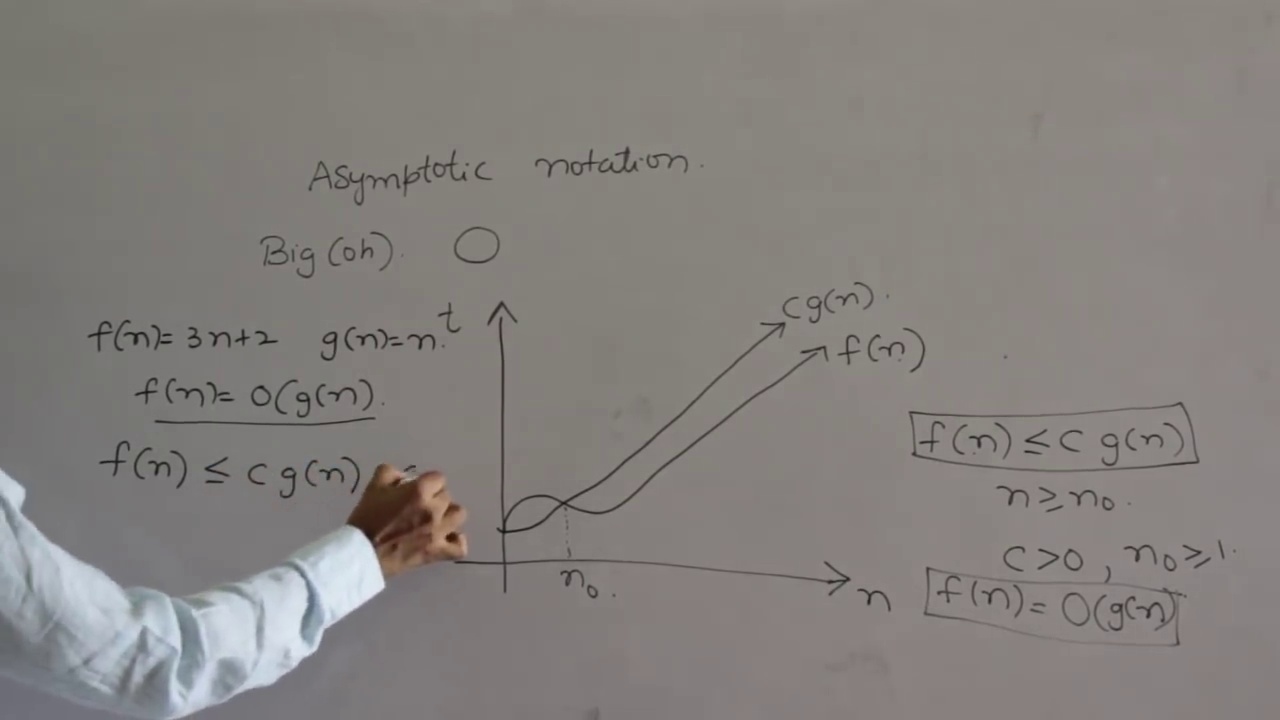 Asymptotic notation.
Big(oh). O
f(n)= 3n+2 g(n)=n.
f(n)= O(g(n).
f(n) ≤ c g(n)
t
c g(n).
f(n)
n₀.
n
f(n) ≤ c g(n)
n ≥ n₀.
c > 0 , n₀ ≥ 1.
f(n) = O(g(n)